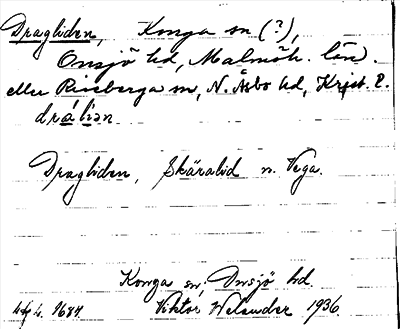 Dragliden, Konga sn (?),
Onsjö hd, Malmöh. län.
eller Riseberga sn, N. Åsbo hd, Krist. l.
drálian
Dragliden, Skäralid n. Vega.
Konga sn, Onsjö hd.
Viktor Welander 1936